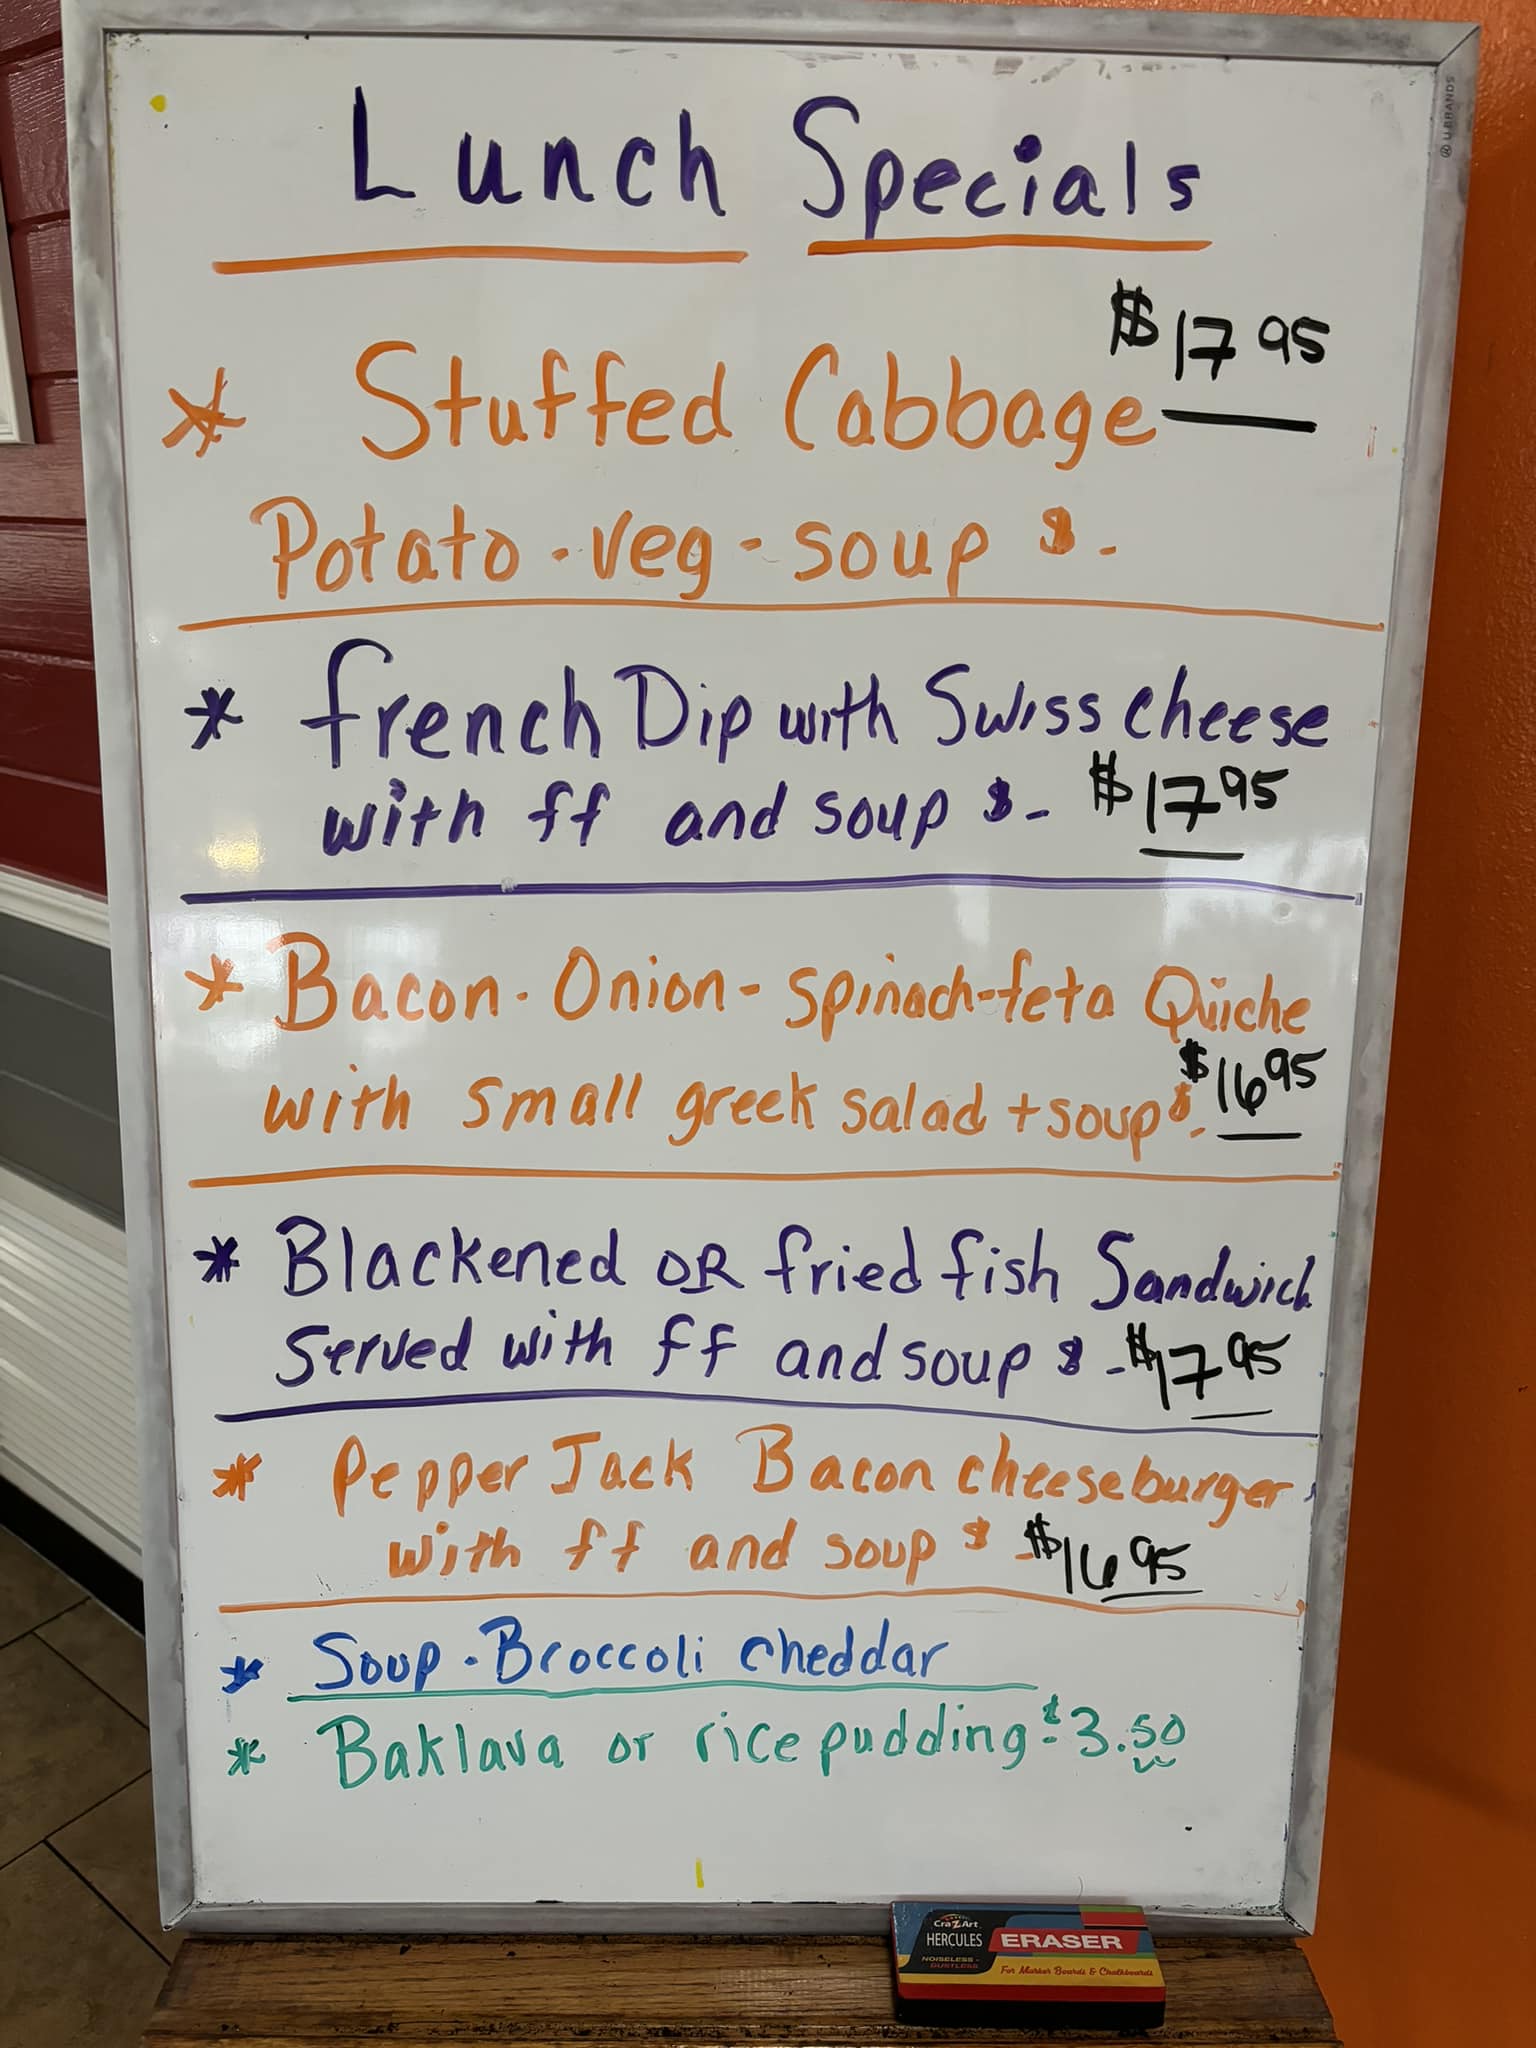 Lunch Specials
$17 95
* Stuffed Cabbage
Potato - veg - soup $ -
* French Dip with Swiss cheese
with ff and soup $ - $17 95
* Bacon - Onion - Spinach - feta Quiche
with small greek salad + soup $ - $16 95
* Blackened OR fried fish Sandwich
Served with ff and soup $ - $17 95
* Pepper Jack Bacon cheeseburger
with ff and soup $ - $16 95
* Soup - Broccoli cheddar
* Baklava or rice pudding - $3.50
U BRANDS
Cra-Z-Art
HERCULES ERASER
NOISELESS -
DUSTLESS
For Marker Boards & Chalkboards